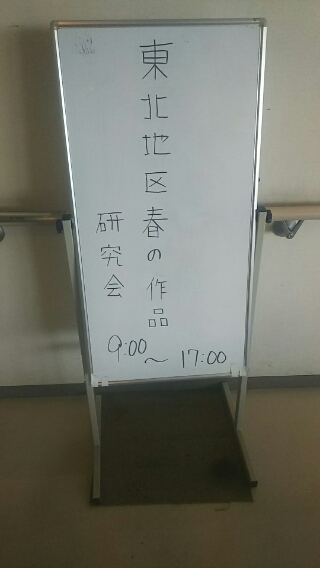 東北地区春の作品
研究会
9:00
〜 17:00